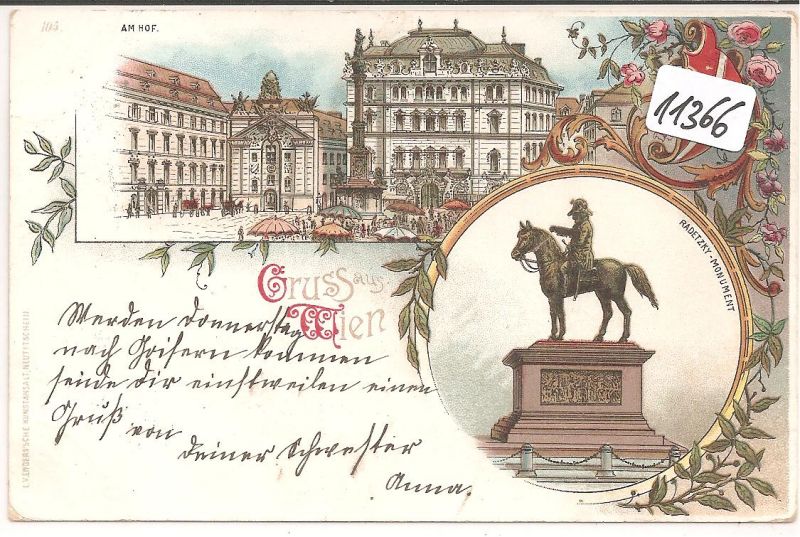 105.
AM HOF.
11366
RADETZKY-MONUMENT
Gruss aus
Wien
Werden Donnerstag
nach Goisern kommen
sende dir einstweilen einen
Gruß von
deiner Schwester
Anna.
L.V.ENDERS'SCHE KUNSTANSALT, NEUTITSCHEIN